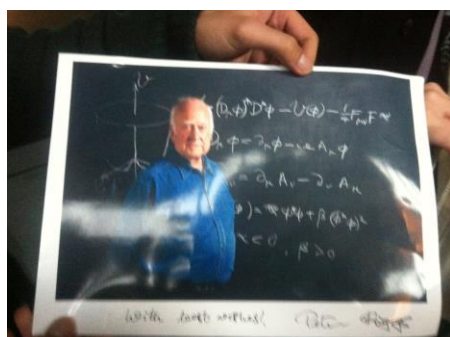 υ
(D_μφ)*D^μφ − U(φ) − ¼F_μν F^μν
D_μφ = ∂_μφ − ieA_μφ
= ∂_μ A_ν − ∂_ν A_μ
φ) = α φ*φ + β(φ*φ)²
α < 0, β > 0
With best wishes! Peter